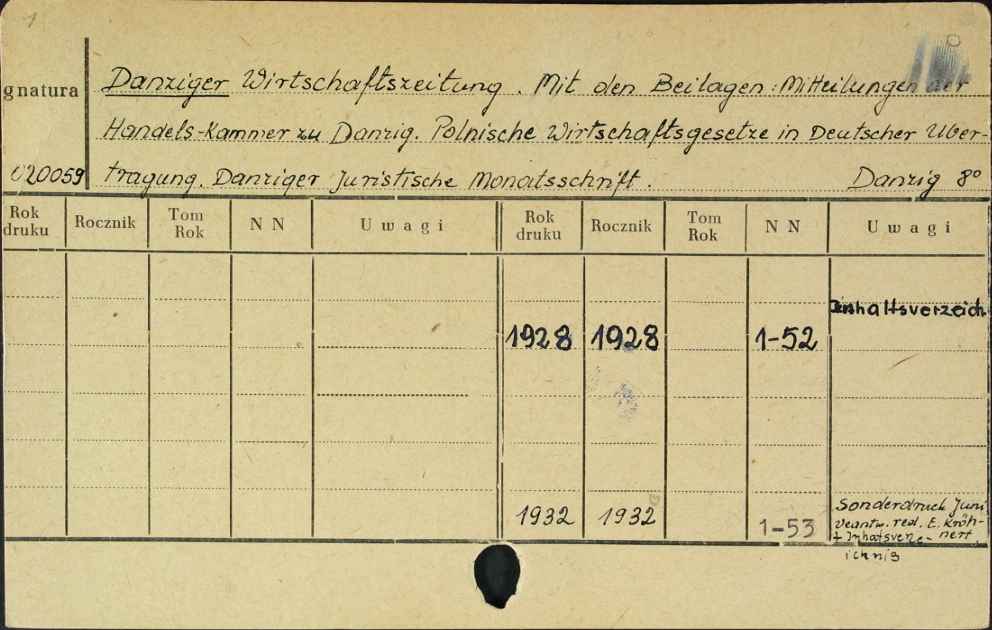 1
gnatura Danziger Wirtschaftszeitung. Mit den Beilagen: Mitteilungen der
Handels-Kammer zu Danzig. Polnische Wirtschaftsgesetze in Deutscher Uber-
020059 tragung. Danziger Juristische Monatsschrift. Danzig 8°
Rok druku Rocznik Tom Rok N N Uwagi Rok druku Rocznik Tom Rok N N Uwagi
Inhaltsverzeich.
1928 1928 1-52
Sonderdruck Juni
1932 1932 1-53 Veantw. red. E. Kröh-
+ Inhatsverze- nert
ichniß